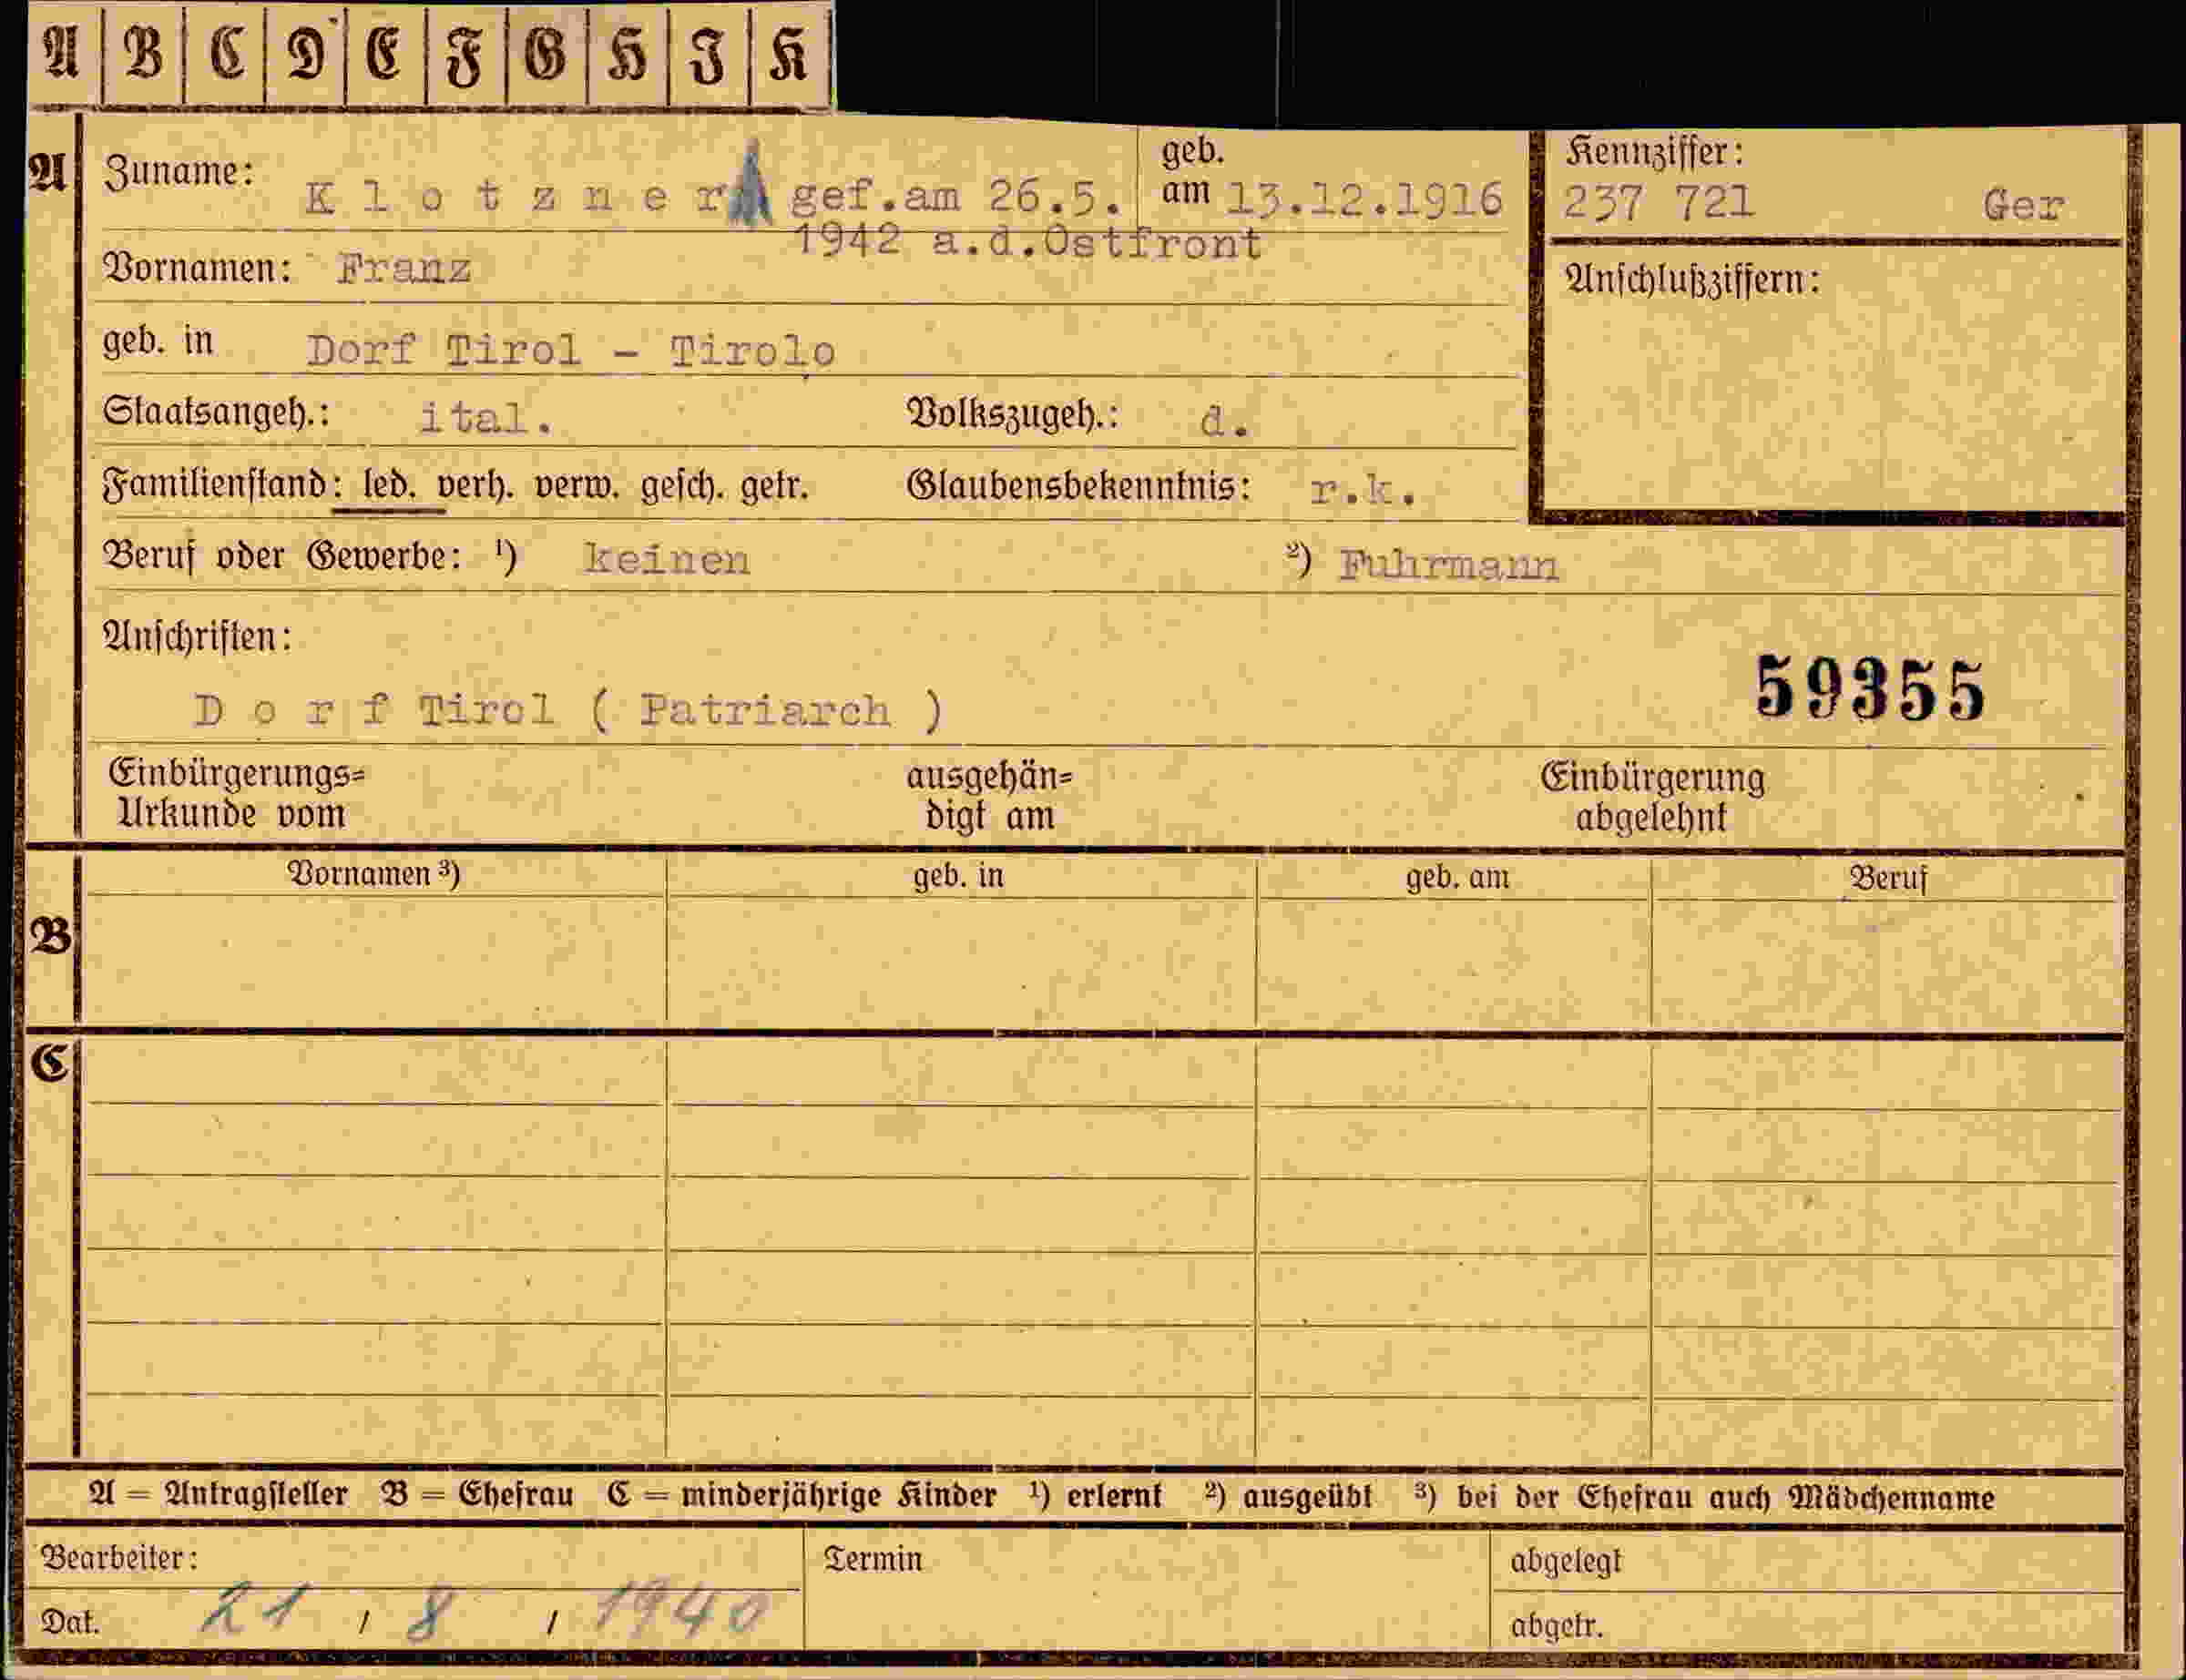 A B C D E F G H I K
A Zuname: Klotzner A gef.am 26.5. geb. am 13.12.1916 Kennziffer:
237 721 Ger
1942 a.d.Ostfront
Vornamen: Franz Anschlußziffern:
geb. in Dorf Tirol - Tirolo
Staatsangeh.: ital. Volkszugeh.: d.
Familienstand: led. verh. verw. gesch. getr. Glaubensbekenntnis: r.k.
Beruf oder Gewerbe: ¹) keinen ²) Fuhrmann
Anschriften:
59355
Dorf Tirol ( Patriarch )
Einbürgerungs= ausgehän= Einbürgerung
Urkunde vom digt am abgelehnt
Vornamen ³) geb. in geb. am Beruf
B
C
A = Antragsteller B = Ehefrau C = minderjährige Kinder ¹) erlernt ²) ausgeübt ³) bei der Ehefrau auch Mädchenname
Bearbeiter: Termin abgelegt
Dat. 21 / 8 / 1940 abgetr.